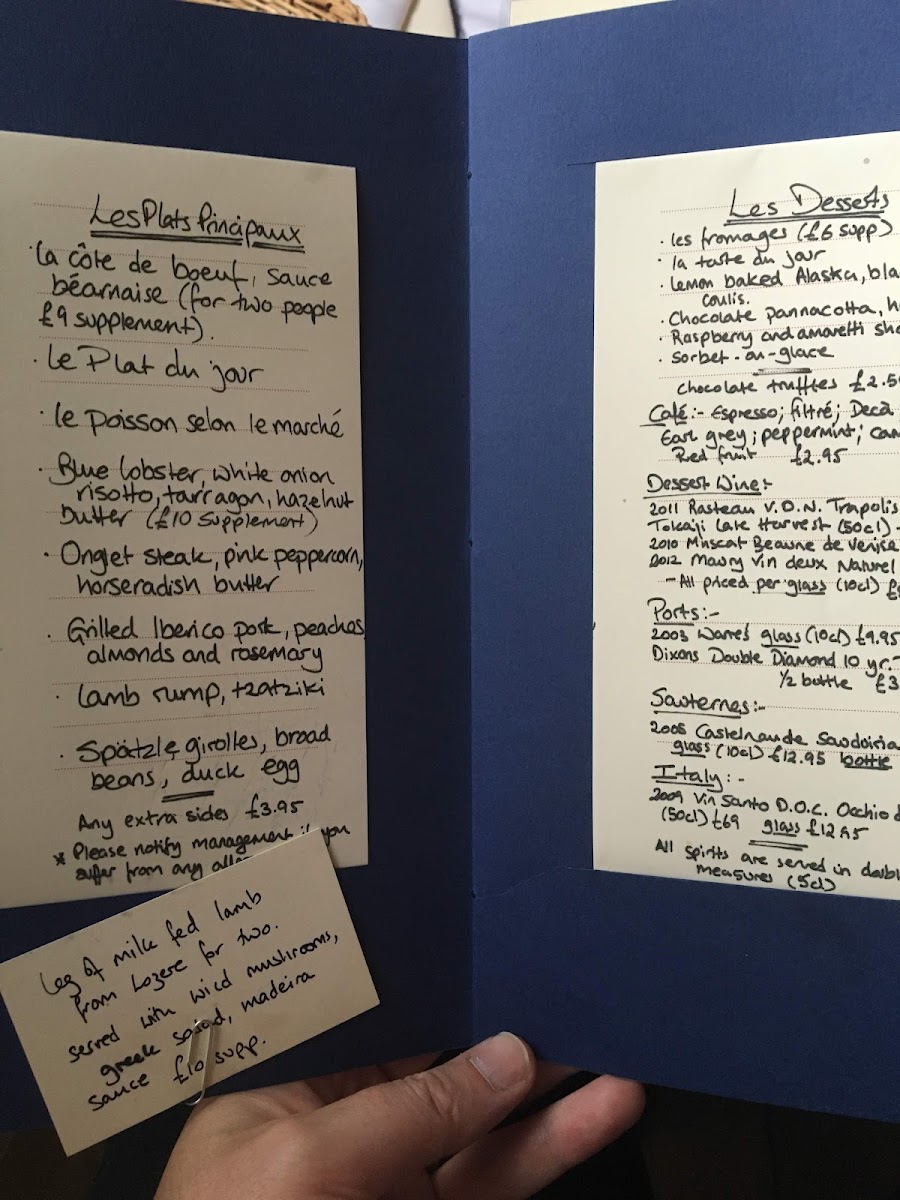 Les Plats Principaux
· La côte de boeuf, sauce
béarnaise (for two people
£9 supplement).
· Le Plat du jour
· le poisson selon le marché
· Blue lobster, white onion
risotto, tarragon, hazelnut
butter (£10 supplement)
· Onglet steak, pink peppercorn,
horseradish butter
· Grilled Iberico pork, peaches
almonds and rosemary
· Lamb rump, tzatziki
· Spätzle, girolles, broad
beans, duck egg
Any extra sides £3.95
* Please notify management if you
suffer from any
Leg of milk fed lamb
from Lozere for two.
served with wild mushrooms,
greek salad, madeira
sauce £10 supp.
Les Desserts
· les fromages (£6 supp)
· la tarte du jour
· Lemon baked Alaska,
coulis.
· Chocolate pannacotta,
· Raspberry and amaretti
· Sorbet-ou-glace
Chocolate truffles £2.5
Café:- Espresso; filtré; Deca
Earl grey; peppermint;
Red fruit £2.95
Dessert Wine:-
2011 Rasteau V.D.N. Trapolis
Tokaji Late Harvest (50cl) -
2010 Muscat Beaune de Venise
2012 Maury Vin deux Naturel
- All priced per glass (10cl) £
Ports:-
2003 Warres glass (10cl) £9.95
Dixons Double Diamond 10 yr.
1/2 bottle £3
Sauternes:-
2005 Castelnaude
glass (10cl) £12.95 bottle
Italy:-
2009 Vin Santo D.O.C. Occhio
(50cl) £69 glass £12.95
All spirits are served in
measures (5cl)